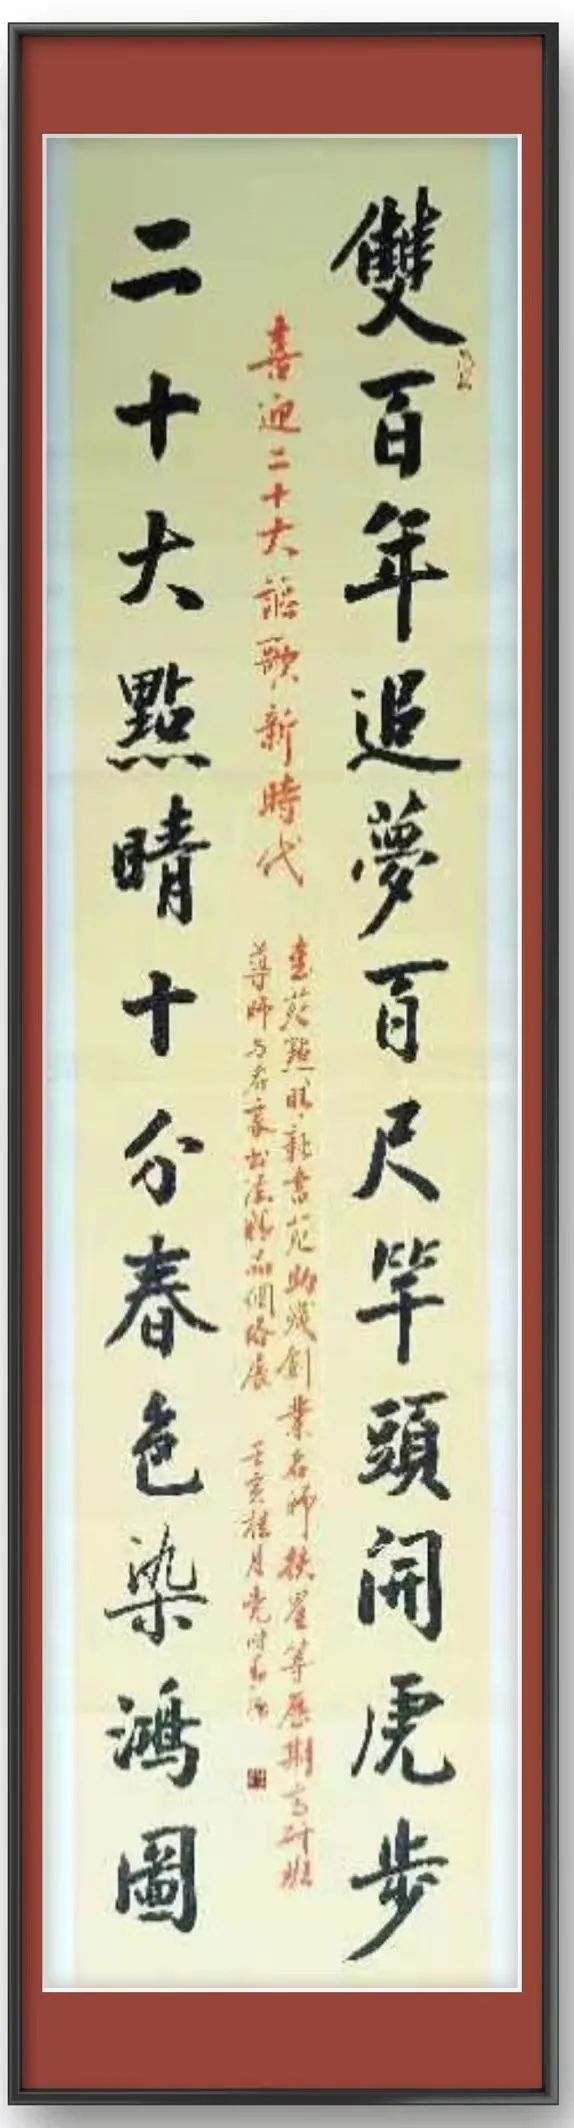 雙百年追夢百尺竿頭開虎步
喜迎二十大謳歌新時代
書苑助殘創業名師扶星等歷期高研班
導師与名家書法精品網絡展 壬寅桂月
二十大點晴十分春色染鴻圖